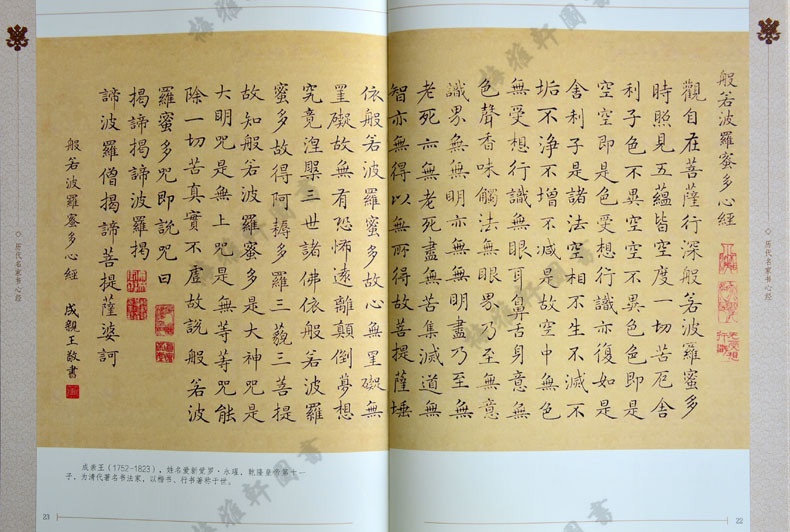 ◇ 历代名家书心经
般若波羅蜜多心經
觀自在菩薩行深般若波羅蜜多
時照見五蘊皆空度一切苦厄舍
利子色不異空空不異色色即是
空空即是色受想行識亦復如是
舍利子是諸法空相不生不滅不
垢不淨不增不減是故空中無色
無受想行識無眼耳鼻舌身意無
色聲香味觸法無眼界乃至無意
識界無無明亦無無明盡乃至無
老死亦無老死盡無苦集滅道無
智亦無得以無所得故菩提薩埵
依般若波羅蜜多故心無罣礙無
罣礙故無有恐怖遠離顛倒夢想
究竟涅槃三世諸佛依般若波羅
蜜多故得阿耨多羅三藐三菩提
故知般若波羅蜜多是大神咒是
大明咒是無上咒是無等等咒能
除一切苦真實不虛故說般若波
羅蜜多咒即說咒曰
揭諦揭諦波羅揭
諦波羅僧揭諦菩提薩婆訶
般若波羅蜜多心經
成親王敬書
◇ 历代名家书心经
成亲王(1752-1823),姓名爱新觉罗·永瑆,乾隆皇帝第十一
子,为清代著名书法家,以楷书、行书著称于世。
23
22